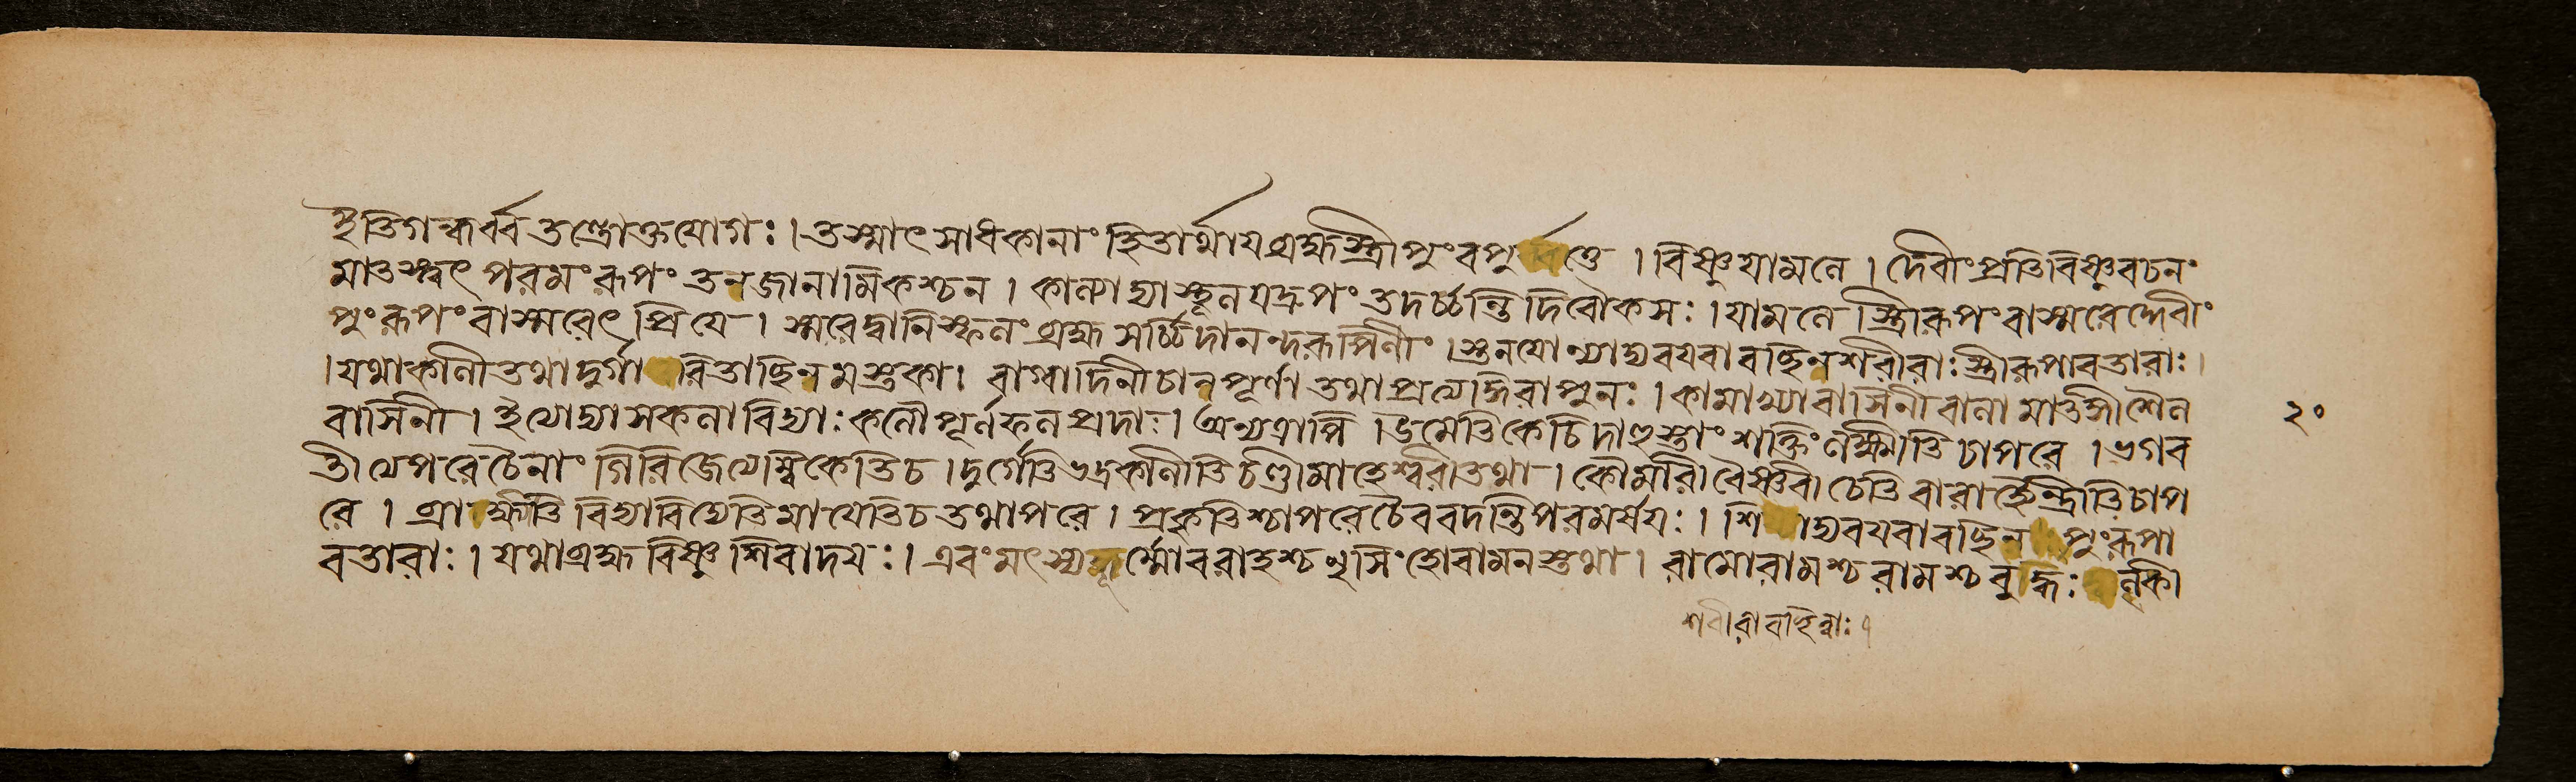 ইতিগন্ধর্ব্বতন্ত্রোক্তযোগঃ।তস্মাৎ সাধকানাং হিতার্থায়ব্রহ্মস্ত্রীপুংবপুর্বত্তে । বিষ্ণুযামলে । দেবীংপ্রতিবিষ্ণুবচনং
মাতস্ত্বৎ পরমং রূপং তন্নজানামিকশ্চন । কাল্যাদ্যাস্থূলযদ্রূপং তদর্চ্চন্তিদিবৌকসঃ । যামলে স্ত্রীরূপংবাস্মরেদ্দেবীং
পুংরূপংবাস্মরেৎ প্রিয়ে । স্মরেদ্বানিষ্কলং ব্রহ্ম সচ্চিদানন্দরূপিনীং ।স্তনযোন্যাদ্যবয়বাবচ্ছিন্নশরীরাঃস্ত্রীরূপাবতারাঃ।
।যথাকালীতথাদুর্গা ত্বরিতাছিন্নমস্তকা। বাগ্বাদিনীচান্নপূর্ণা তথাপ্রত্যঙ্গিরাপুনঃ । কামাখ্যাবাসিনীবালা মাতঙ্গীশৈল
বাসিনী । ইত্যেদ্যাসকলাবিদ্যাঃকলৌপূর্ণফলপ্রদাঃ। অন্যত্রাপি ।উমেতিকেচিদাহুস্তাং শক্তিংলক্ষ্মীতি চাপরে । ভগব
তীত্যেপরেচৈনাং গিরিজেত্যেম্বিকেতিচ ।দুর্গেতিভদ্রকালীতিচণ্ডীমাহেশ্বরীতথা । কৌমরীবৈষ্ণবীচেতিবারাহৈন্দ্রীতিচাপ
রে । ব্রাহ্মীতি বিদ্যাবিদ্যেতিমায়েতিচতথাপরে । প্রকৃতিশ্চাপরেচৈববদন্তিপরমর্ষয়ঃ । শি াদ্যবয়বাবচ্ছিন্ন পুংরূপা
বতারাঃ । যথাব্রহ্মবিষ্ণুশিবাদয়ঃ । এবংমৎস্যকূর্ম্মোবরাহশ্চনৃসিংহোবামনস্তথা । রামোরামশ্চরামশ্চবুদ্ধঃ কল্কী
শরীরাবচ্ছিন্নাঃ।
২০